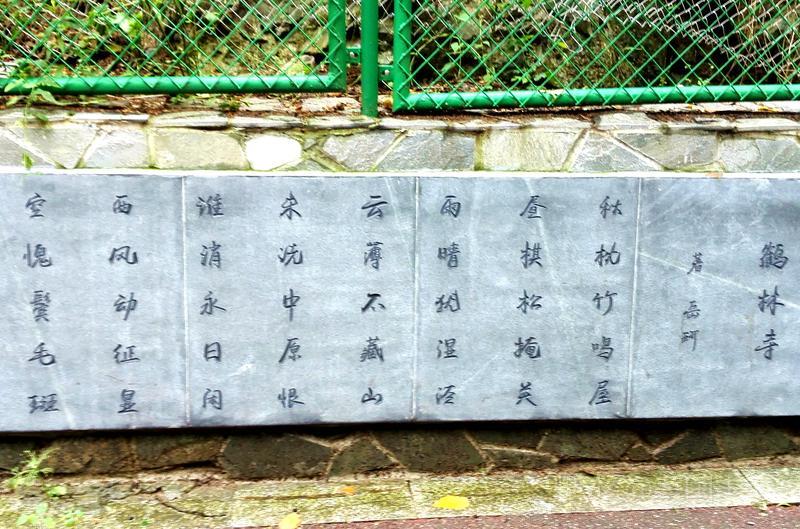 鹤林寺
著 岳珂
秋枕竹鸣屋
昼棋松掩英
雨晴犹湿泾
云薄不藏山
未洗中原恨
谁消永日闲
西风动征显
空愧鬓毛斑